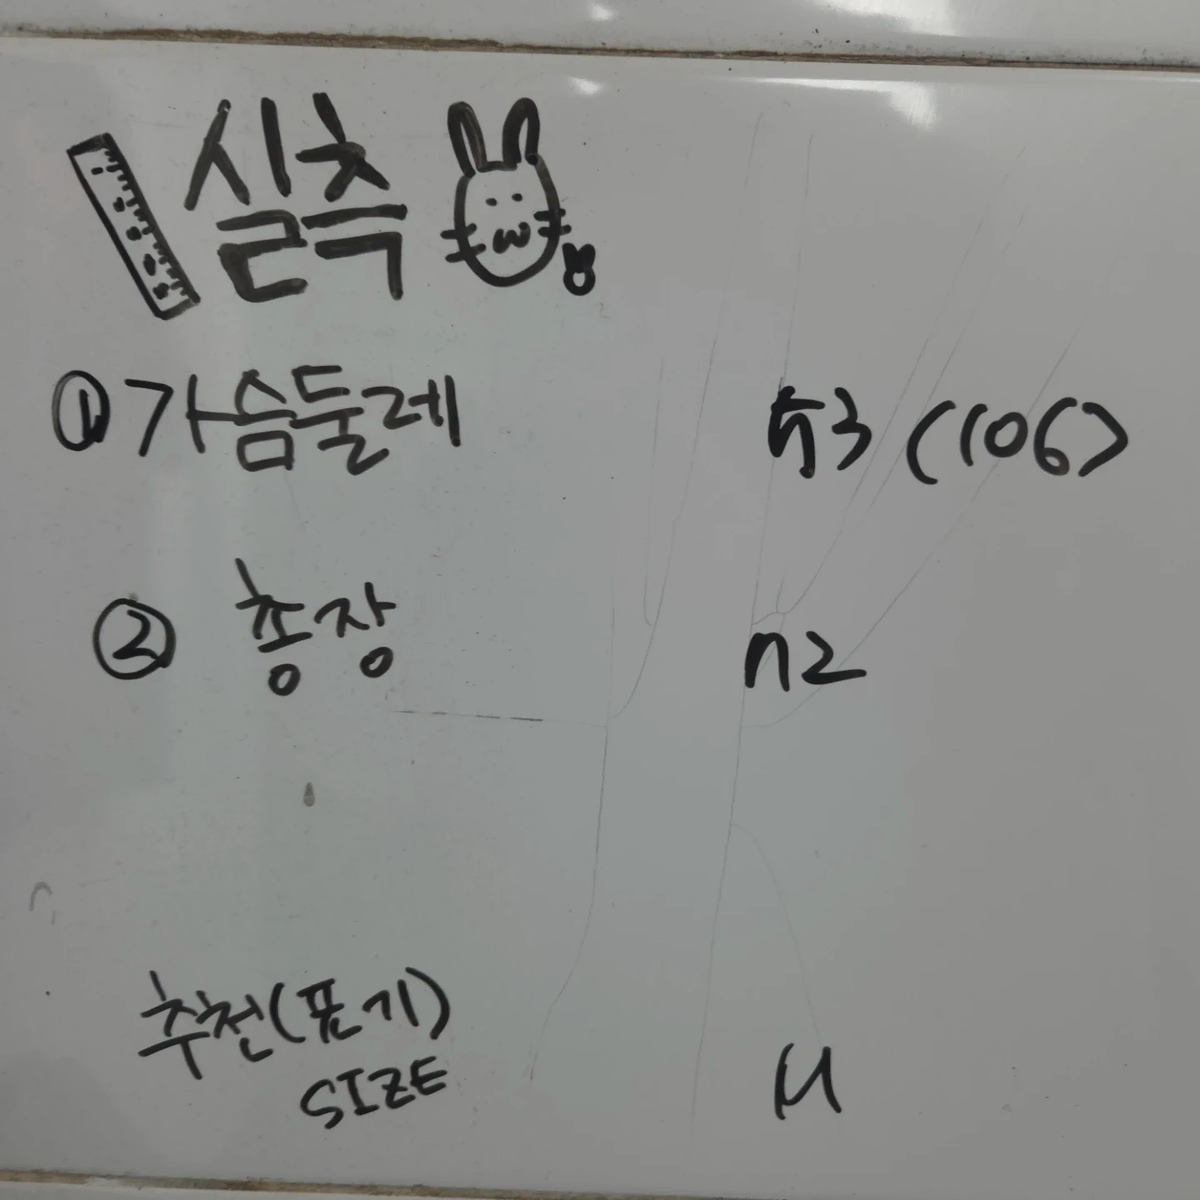 실측
① 가슴둘레 53 (106)
② 총장 72
추천(표기) M
SIZE